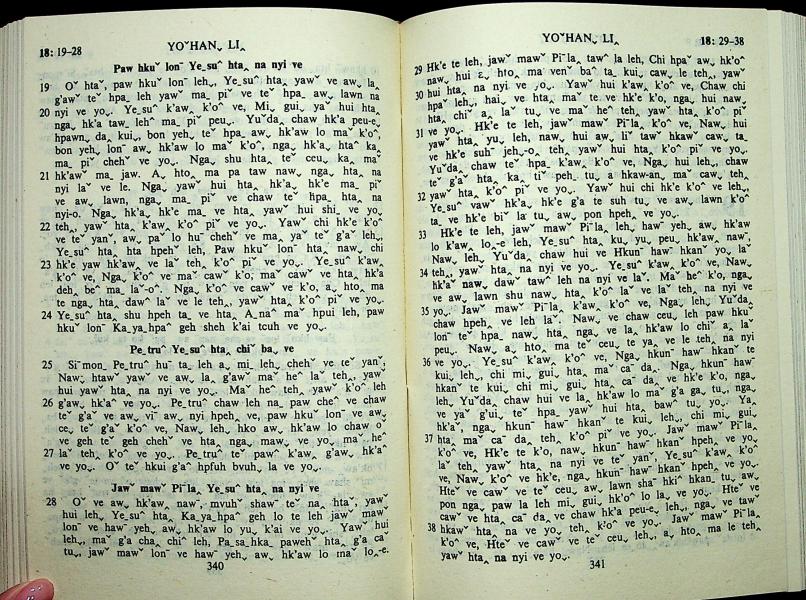 18: 19-28 YOˇHANˬ LI˰
Paw hkuˇ lonˉ Ye_suˆ hta˰ na nyi ve
19 Oˇ htaˇ, paw hkuˇ lonˉ lehˬ, Ye_suˆ hta˰ yawˇ ve awˬ la˰
g'awˇ teˇ hpaˬ leh yawˇ maˬ piˇ ve teˇ hpaˬ awˬ lawn na
20 nyi ve yoˬ. Ye_suˆ k'aw˰ k'oˆ ve, Miˬ guiˬ yaˇ hui hta˰
ngaˬ hk'a tawˬ lehˆ maˬ piˇ peuˬ. Yuˇdaˬ chaw hk'a peu-eˬ
hpawnˬ daˬ kuiˬ, bon yehˬ teˇ hpaˬ awˬ hk'aw lo maˇ k'oˆ
bon yehˬ lonˉ awˬ hk'aw lo maˇ k'oˆ, ngaˬ hk'aˬ htaˆ kaˬ
maˬ piˇ chehˇ ve yoˬ. Ngaˬ shu hta˰ teˇ ceuˬ kaˬ maˇ
21 hk'awˇ maˬ jaw. Aˬ htoˬ ma pa taw nawˬ ngaˬ hta˰ na
nyi laˇ ve le. Ngaˬ yawˇ hui hta˰ hk'aˬ hk'e maˬ piˇ
ve awˬ lawn, ngaˬ maˬ piˇ ve chaw teˇ hpaˬ hta˰ na
nyi-o. Ngaˬ hk'aˬ hk'e ma ve hta˰ yawˇ hui shiˬ ve yoˬ
22 tehˬ, yawˇ hta˰ k'aw˰ k'oˆ piˇ ve yoˬ. Yawˇ chi hk'e k'oˆ
ve teˇ yanˇ, awˬ paˇ lo huˉ chehˇ ve maˬ yaˇ teˇ g'aˇ lehˬ,
Ye_suˆ hta˰ hta hpehˇ leh, Paw hkuˇ lonˉ hta˰ nawˬ chi
23 hk'e yaw hk'awˬ ve laˇ tehˬ k'oˆ piˇ ve yoˬ. Ye_suˆ k'aw˰
k'oˆ ve, Ngaˬ k'oˆ ve maˇ cawˇ k'o, maˇ cawˇ ve hta˰ hk'a
dehˬ beˆ maˬ laˇ-oˆ. Ngaˬ k'oˆ ve cawˇ ve k'o, aˬ htoˬ ma
te ngaˬ hta˰ dawˆ laˇ ve le tehˬ, yawˇ hta˰ k'oˆ piˇ ve yoˬ.
24 Ye_suˆ hta˰ shu hpeh taˬ ve hta˰ Aˬnaˆ maˇ hpui leh, paw
hkuˇ lonˉ Kaˬyaˬhpaˆ geh sheh k'ai tcuh ve yoˬ.
Peˬtruˆ Ye_suˆ hta˰ chiˇ baˬ ve
25 Siˉmonˬ Peˬtruˆ huˉ taˬ leh aˬ miˬ lehˬ chehˇ ve teˇ yanˇ,
Nawˬ htawˇ yawˇ ve awˬ la˰ g'awˇ maˇ heˆ laˇ tehˬ, yawˇ
hui yawˇ hta˰ na nyi ve yoˬ. Maˇ heˆ tehˬ yawˇ k'oˆ leh
26 g'awˬ hk'aˇ ve yoˬ. Peˬtruˆ chaw leh naˬ paw cheˆ ve chaw
teˇ g'aˇ ve awˬ viˉ awˬ nyi hpehˇ ve, paw hkuˇ lonˉ ve awˬ
ceˬ teˇ g'aˇ k'oˆ ve, Naw lehˬ, hko awˬ hk'aw lo chaw oˇ
ve geh teˇ geh chehˇ ve hta˰ ngaˬ mawˬ ve yoˬ maˇ heˆ
27 laˇ tehˬ k'oˆ ve yoˬ. Peˬtruˆ teˇ pawˇ k'aw˰ g'awˬ hk'aˇ
ve yoˬ. Oˇ teˇ hkui g'aˆ hpfuh bvuhˬ la ve yoˬ.
Jawˇ mawˇ Piˉla˰ Ye_suˆ hta˰ na nyi ve
28 Oˇ ve awˬ hk'awˬ nawˉ, mvuhˇ shawˉ teˇ naˬ htaˇ, yawˇ
hui lehˬ, Ye_suˆ hta˰ Kaˬyaˬhpaˆ geh lo te leh jawˇ mawˇ
lonˉ ve hawˇ yehˬ awˬ hk'aw lo yuˬ k'ai ve yoˬ. Yawˇ hui
lehˬ, maˇ g'a chaˬ chiˆ leh, Paˬsaˬhkaˬ pawehˇ hta˰ g'a caˇ
tuˬ, jawˇ mawˇ lonˉ ve hawˇ yehˬ awˬ hk'aw lo maˇ loˬ-e.
340
YOˇHANˬ LI˰ 18: 29-38
29 Hk'e te leh, jawˇ mawˇ Piˉla˰ tawˇ la leh, Chi hpaˇ awˬ hk'oˆ
30 hui hta˰ na nyi ve yoˬ. Yawˇ hui k'aw˰ k'oˆ ve, Chaw chi
hpaˇ lehˬ, haiˬ ve hta˰ maˇ te ve hk'e k'o, nga hui nawˬ
hta˰ chiˇ aˬ laˇ tuˬ ve maˇ heˆ tehˬ yawˇ hta˰ k'oˆ piˇ
31 ve yoˬ. Hk'e te leh, jawˇ mawˇ Piˉla˰ k'oˆ ve, Naw hui
yawˇ hta˰ yuˬ leh, nawˬ hui awˬ liˇ tawˇ hkaw cawˬ ta
ve hk'e suhˉ jehˬ-oˬ tehˬ yawˇ hui hta˰ k'oˆ piˇ ve yoˬ.
Yuˇdaˬ chaw teˇ hpaˬ k'aw˰ k'oˆ ve, Ngaˬ hui lehˬ, chaw
teˇ g'aˇ hta˰ kaˬ tiˇ pehˬ tuˬ a hkaw-anˬ maˇ cawˬ tehˬ
32 yawˇ hta˰ k'oˆ piˇ ve yoˬ. Yawˇ hui chi hk'e k'oˆ ve lehˬ,
Ye_suˆ vawˇ hk'aˬ hk'e g'a te suh tuˬ ve awˬ lawn k'oˆ
taˬ ve hk'e biˇ laˇ tuˬ awˬ pon hpehˬ ve yoˬ.
33 Hk'e te leh, jawˇ mawˇ Piˉla˰ leh, hawˇ yehˬ awˬ hk'aw
lo k'aw˰ loˬ-e leh, Ye_suˆ hta˰ kuˬ yuˬ peuˬ hk'awˬ nawˉ,
Naw lehˬ Yuˇdaˬ chaw hui ve Hkunˉ hawˉ hkanˆ yoˬ laˇ
34 tehˬ yawˇ hta˰ na nyi ve yoˬ. Ye_suˆ k'aw˰ k'oˆ ve, Naw
hk'aˇ nawˬ dawˇ tawˇ leh na nyi ve laˇ. Maˇ heˆ k'o, ngaˬ
ve awˬ lawn shu nawˬ hta˰ k'oˆ laˇ ve laˇ tehˬ na nyi ve
35 yoˬ. Jawˇ mawˇ Piˉla˰ k'aw˰ k'oˆ ve, Nga lehˬ Yuˇdaˬ
chaw hpehˬ ve leh laˇ. Nawˬ ve chaw ceuˬ leh paw hkuˇ
lonˉ teˇ hpaˬ nawˬ hta˰ ngaˬ ve la˰ hk'aw lo chiˇ aˬ laˇ
peuˬ. Naw aˬ htoˬ ma teˇ ceuˬ te yaˬ ve le tehˬ na nyi
36 ve yoˬ. Ye_suˆ k'aw˰ k'oˆ ve, Ngaˬ hkunˉ hawˉ hkanˆ te
kuiˬ lehˬ, chi miˬ guiˬ hta˰ maˇ caˉ daˬ. Ngaˬ hkunˉ hawˉ
hkanˆ te kuiˬ chi miˬ guiˬ hta˰ caˉ daˬ ve hk'e k'o, ngaˬ
leh, Yuˇdaˬ chaw hui ve la˰ hk'aw lo maˇ g'a gaˬ tuˬ, ngaˬ
ve yaˇ g'uiˬ teˇ hpaˬ yawˇ hui hta˰ bawˆ tuˬ yoˬ. Yaˬ
hk'aˇ, ngaˬ hkunˉ hawˉ hkanˆ te kuiˬ lehˬ, chi miˬ guiˬ
37 hta˰ maˇ caˉ daˬ tehˬ k'oˆ piˇ ve yoˬ. Jawˇ mawˇ Piˉla˰
k'oˆ ve, Hk'e te k'o, naw hkunˉ hawˉ hkanˆ hpehˬ ve yoˬ
laˇ tehˬ yawˇ hta˰ na nyi ve teˇ yanˇ, Ye_suˆ k'aw˰ k'oˆ
ve, Naw k'oˆ ve hk'e, nga hkunˉ hawˉ hkanˆ hpehˬ ve yoˬ.
Hteˇ ve cawˇ ve teˇ ceuˬ awˬ lawn shaˉ hkiˆ hkanˬ tuˬ awˬ
pon ngaˬ paw la leh miˬ guiˬ hk'oˆ lo la ve yoˬ. Hteˇ ve
cawˇ ve hta˰ caˉ daˬ ve chaw hk'a peu-e lehˬ, ngaˬ ve tawˇ
38 hkawˇ hta˰ na ve yoˬ tehˬ k'oˆ ve yoˬ. Jawˇ mawˇ Piˉla˰
k'oˆ ve, Hteˇ ve cawˇ ve teˇ ceuˬ lehˬ, aˬ htoˬ ma le tehˬ
yawˇ hta˰ na nyi ve yoˬ.
341